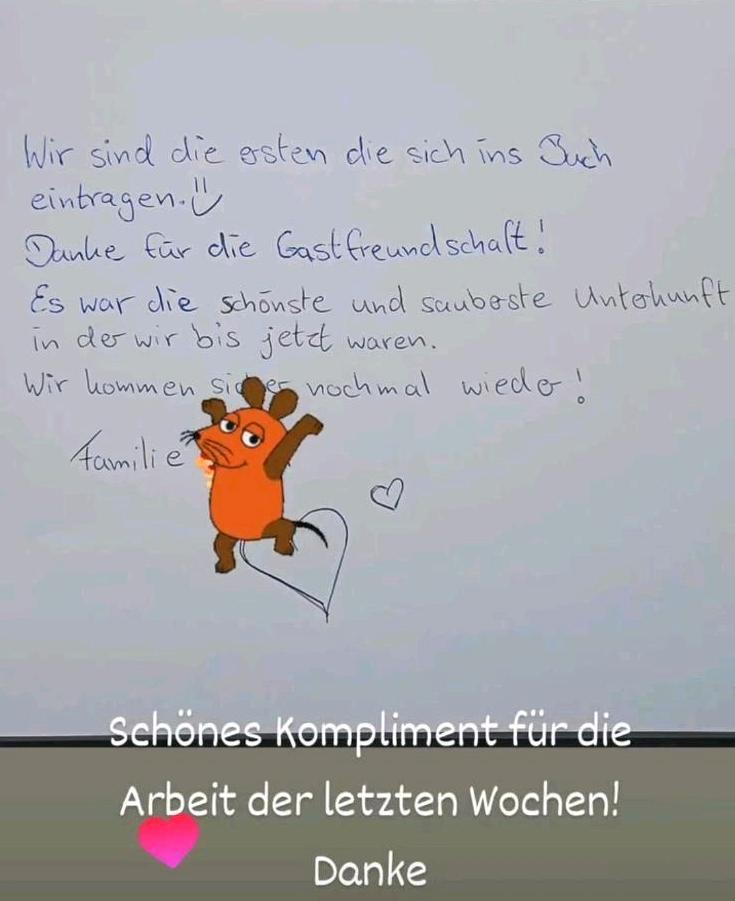 Wir sind die ersten die sich ins Buch
eintragen.
Danke für die Gastfreundschaft!
Es war die schönste und sauberste Unterkunft
in der wir bis jetzt waren.
Wir kommen sicher nochmal wieder!
Familie
Schönes Kompliment für die
Arbeit der letzten Wochen!
Danke